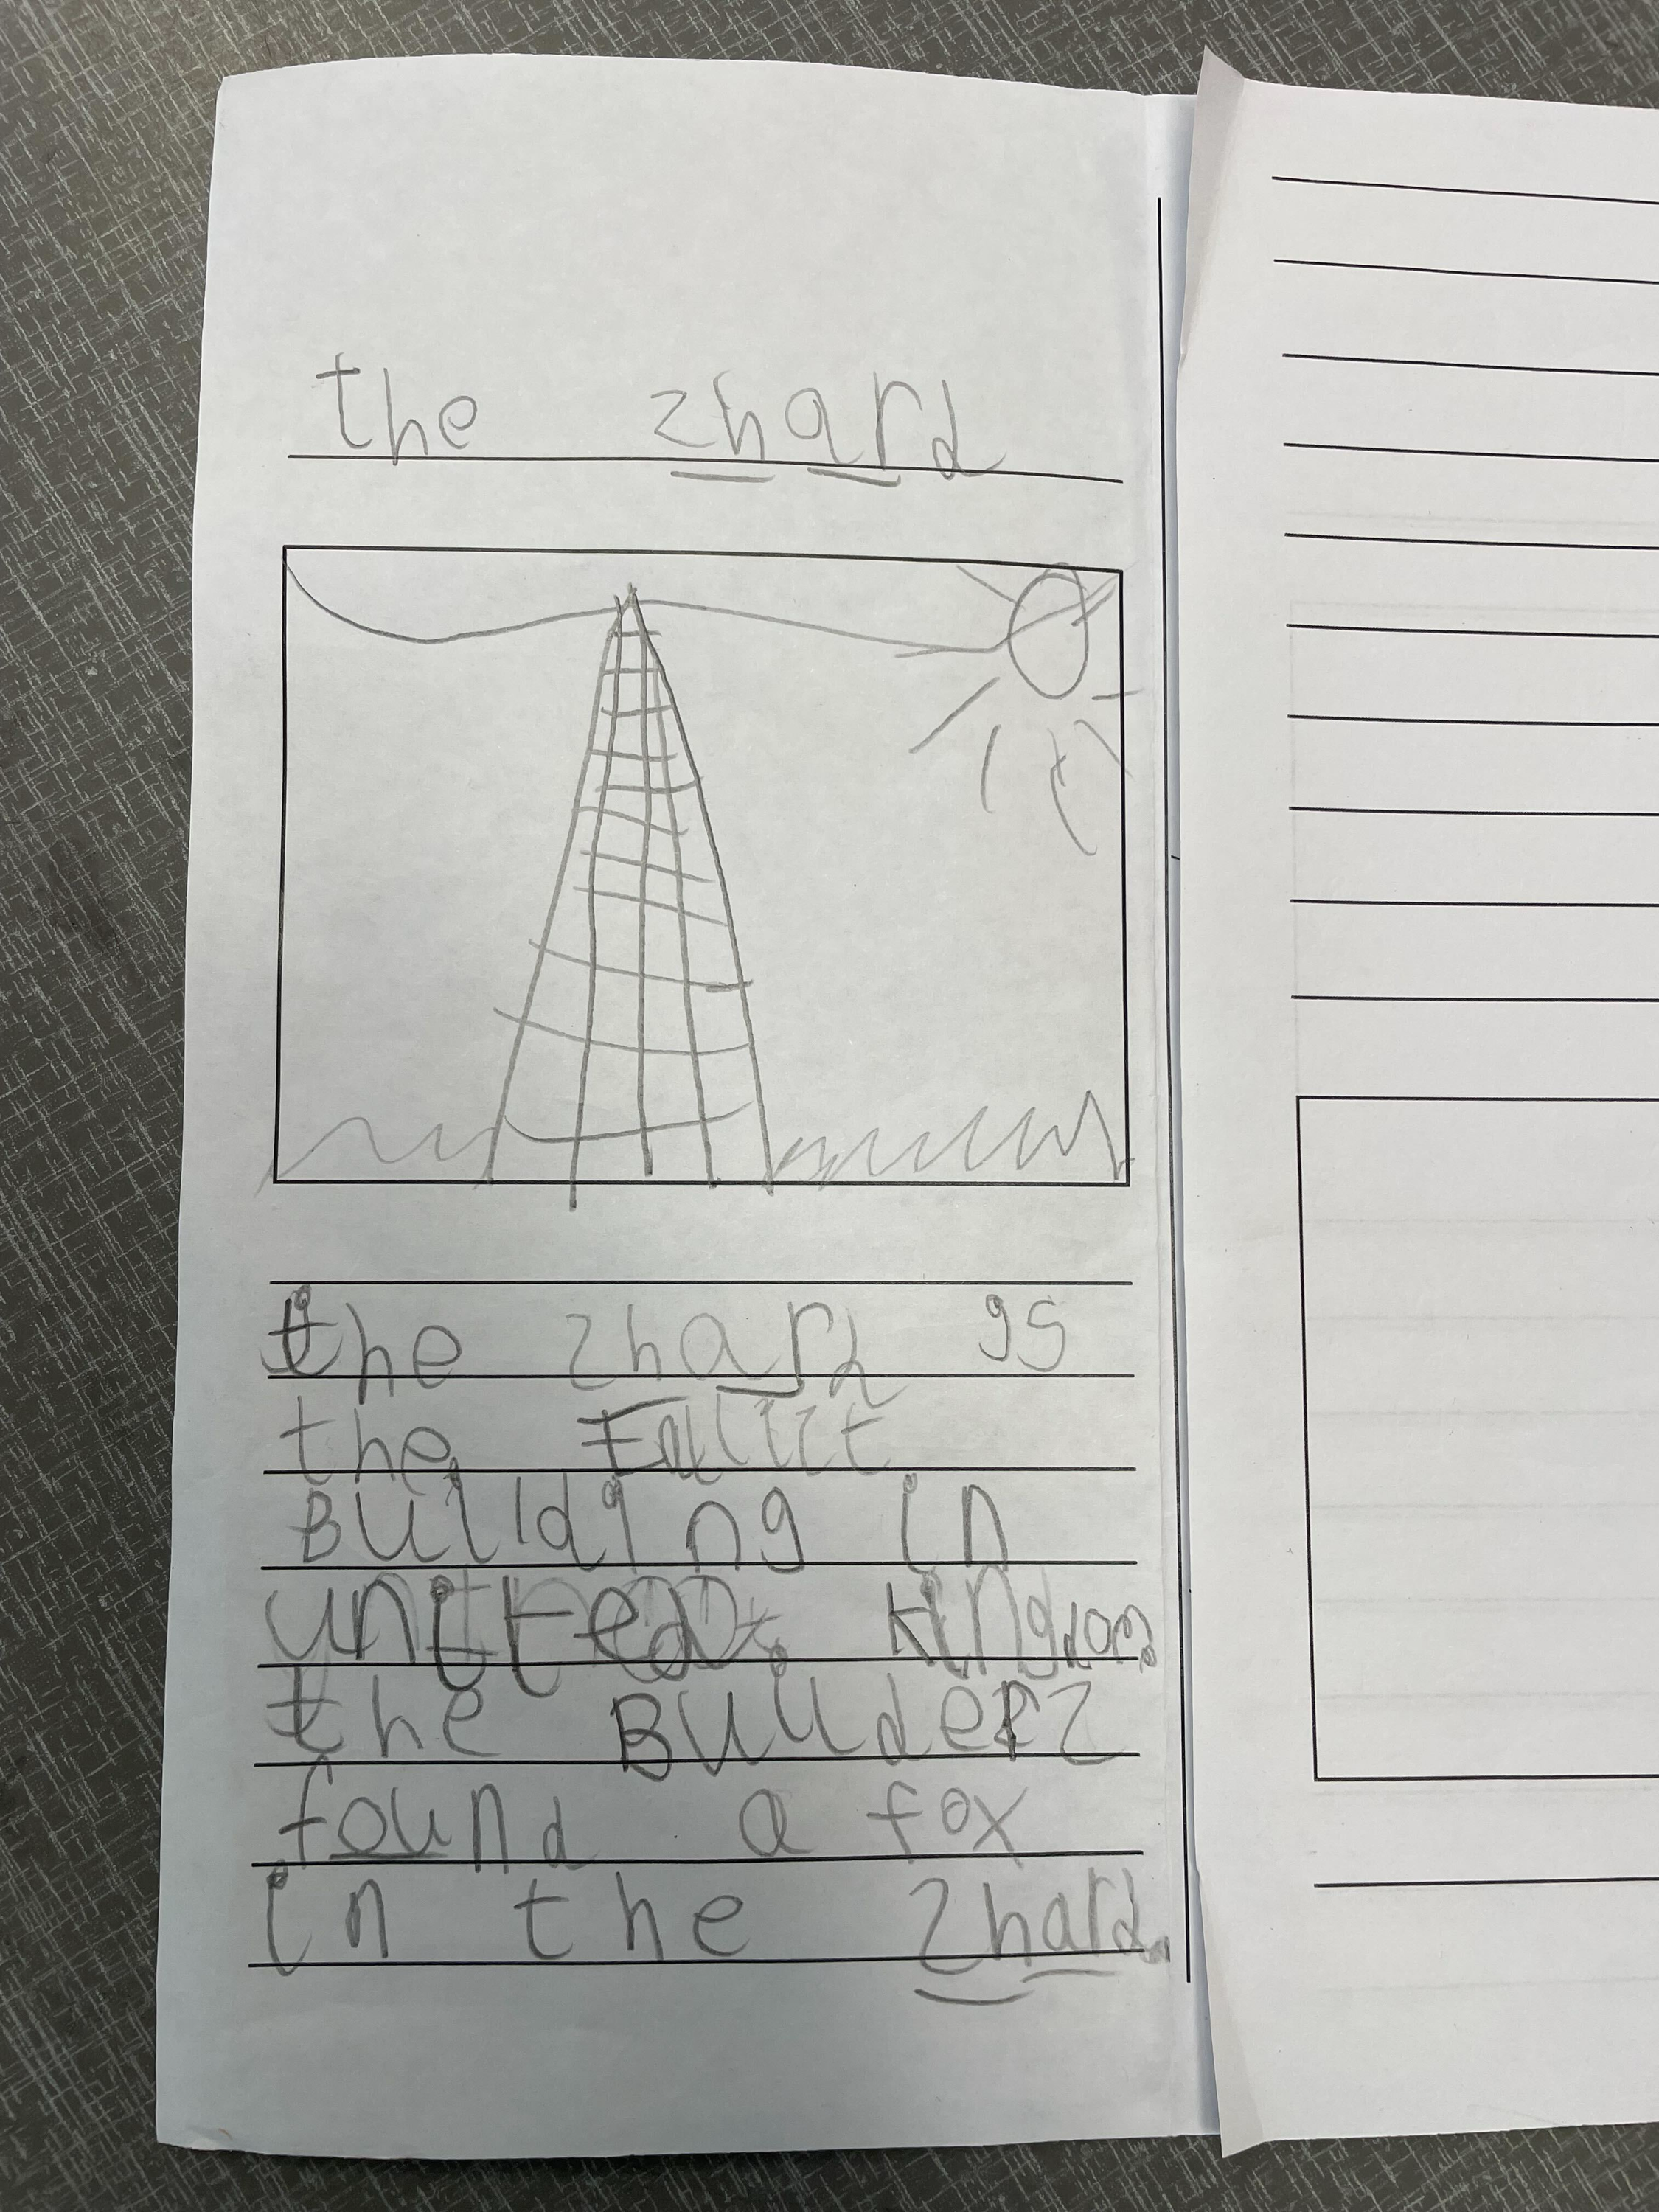 the zhard
the zhard is
the
Building in
united kingdom.
the Builderz
found a fox
in the zhard.